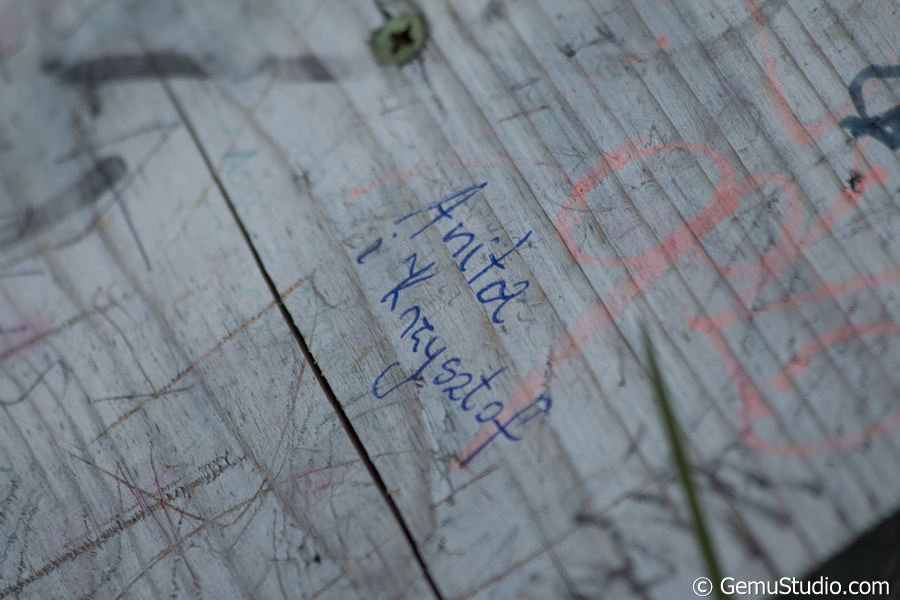 Anita
i Krzysztof
© GemuStudio.com